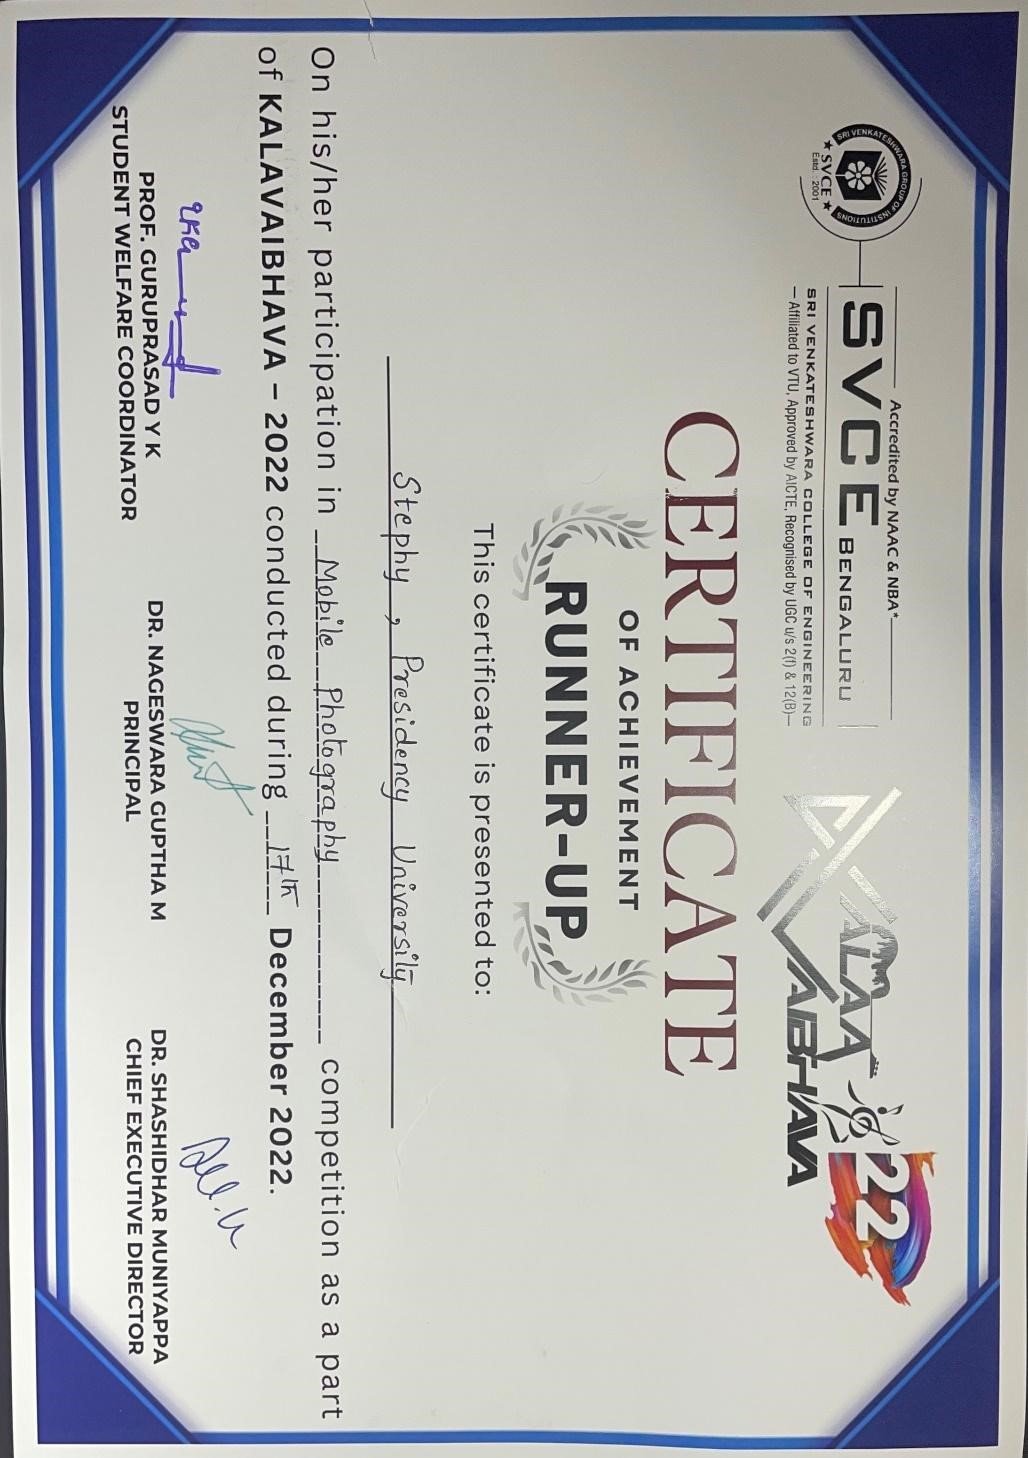 SRI VENKATESHWARA GROUP OF INSTITUTIONS
★ SVCE ★
Estd. : 2001
Accredited by NAAC & NBA*
SVCE BENGALURU
SRI VENKATESHWARA COLLEGE OF ENGINEERING
Affiliated to VTU, Approved by AICTE, Recognised by UGC u/s 2(f) & 12(B)
KALAA
VAIBHAVA
22
CERTIFICATE
OF ACHIEVEMENT
RUNNER-UP
This certificate is presented to:
Stephy , Presidency University
On his/her participation in Mobile Photography competition as a part
of KALAVAIBHAVA – 2022 conducted during 17th December 2022.
PROF. GURUPRASAD Y K
STUDENT WELFARE COORDINATOR
DR. NAGESWARA GUPTHA M
PRINCIPAL
DR. SHASHIDHAR MUNIYAPPA
CHIEF EXECUTIVE DIRECTOR